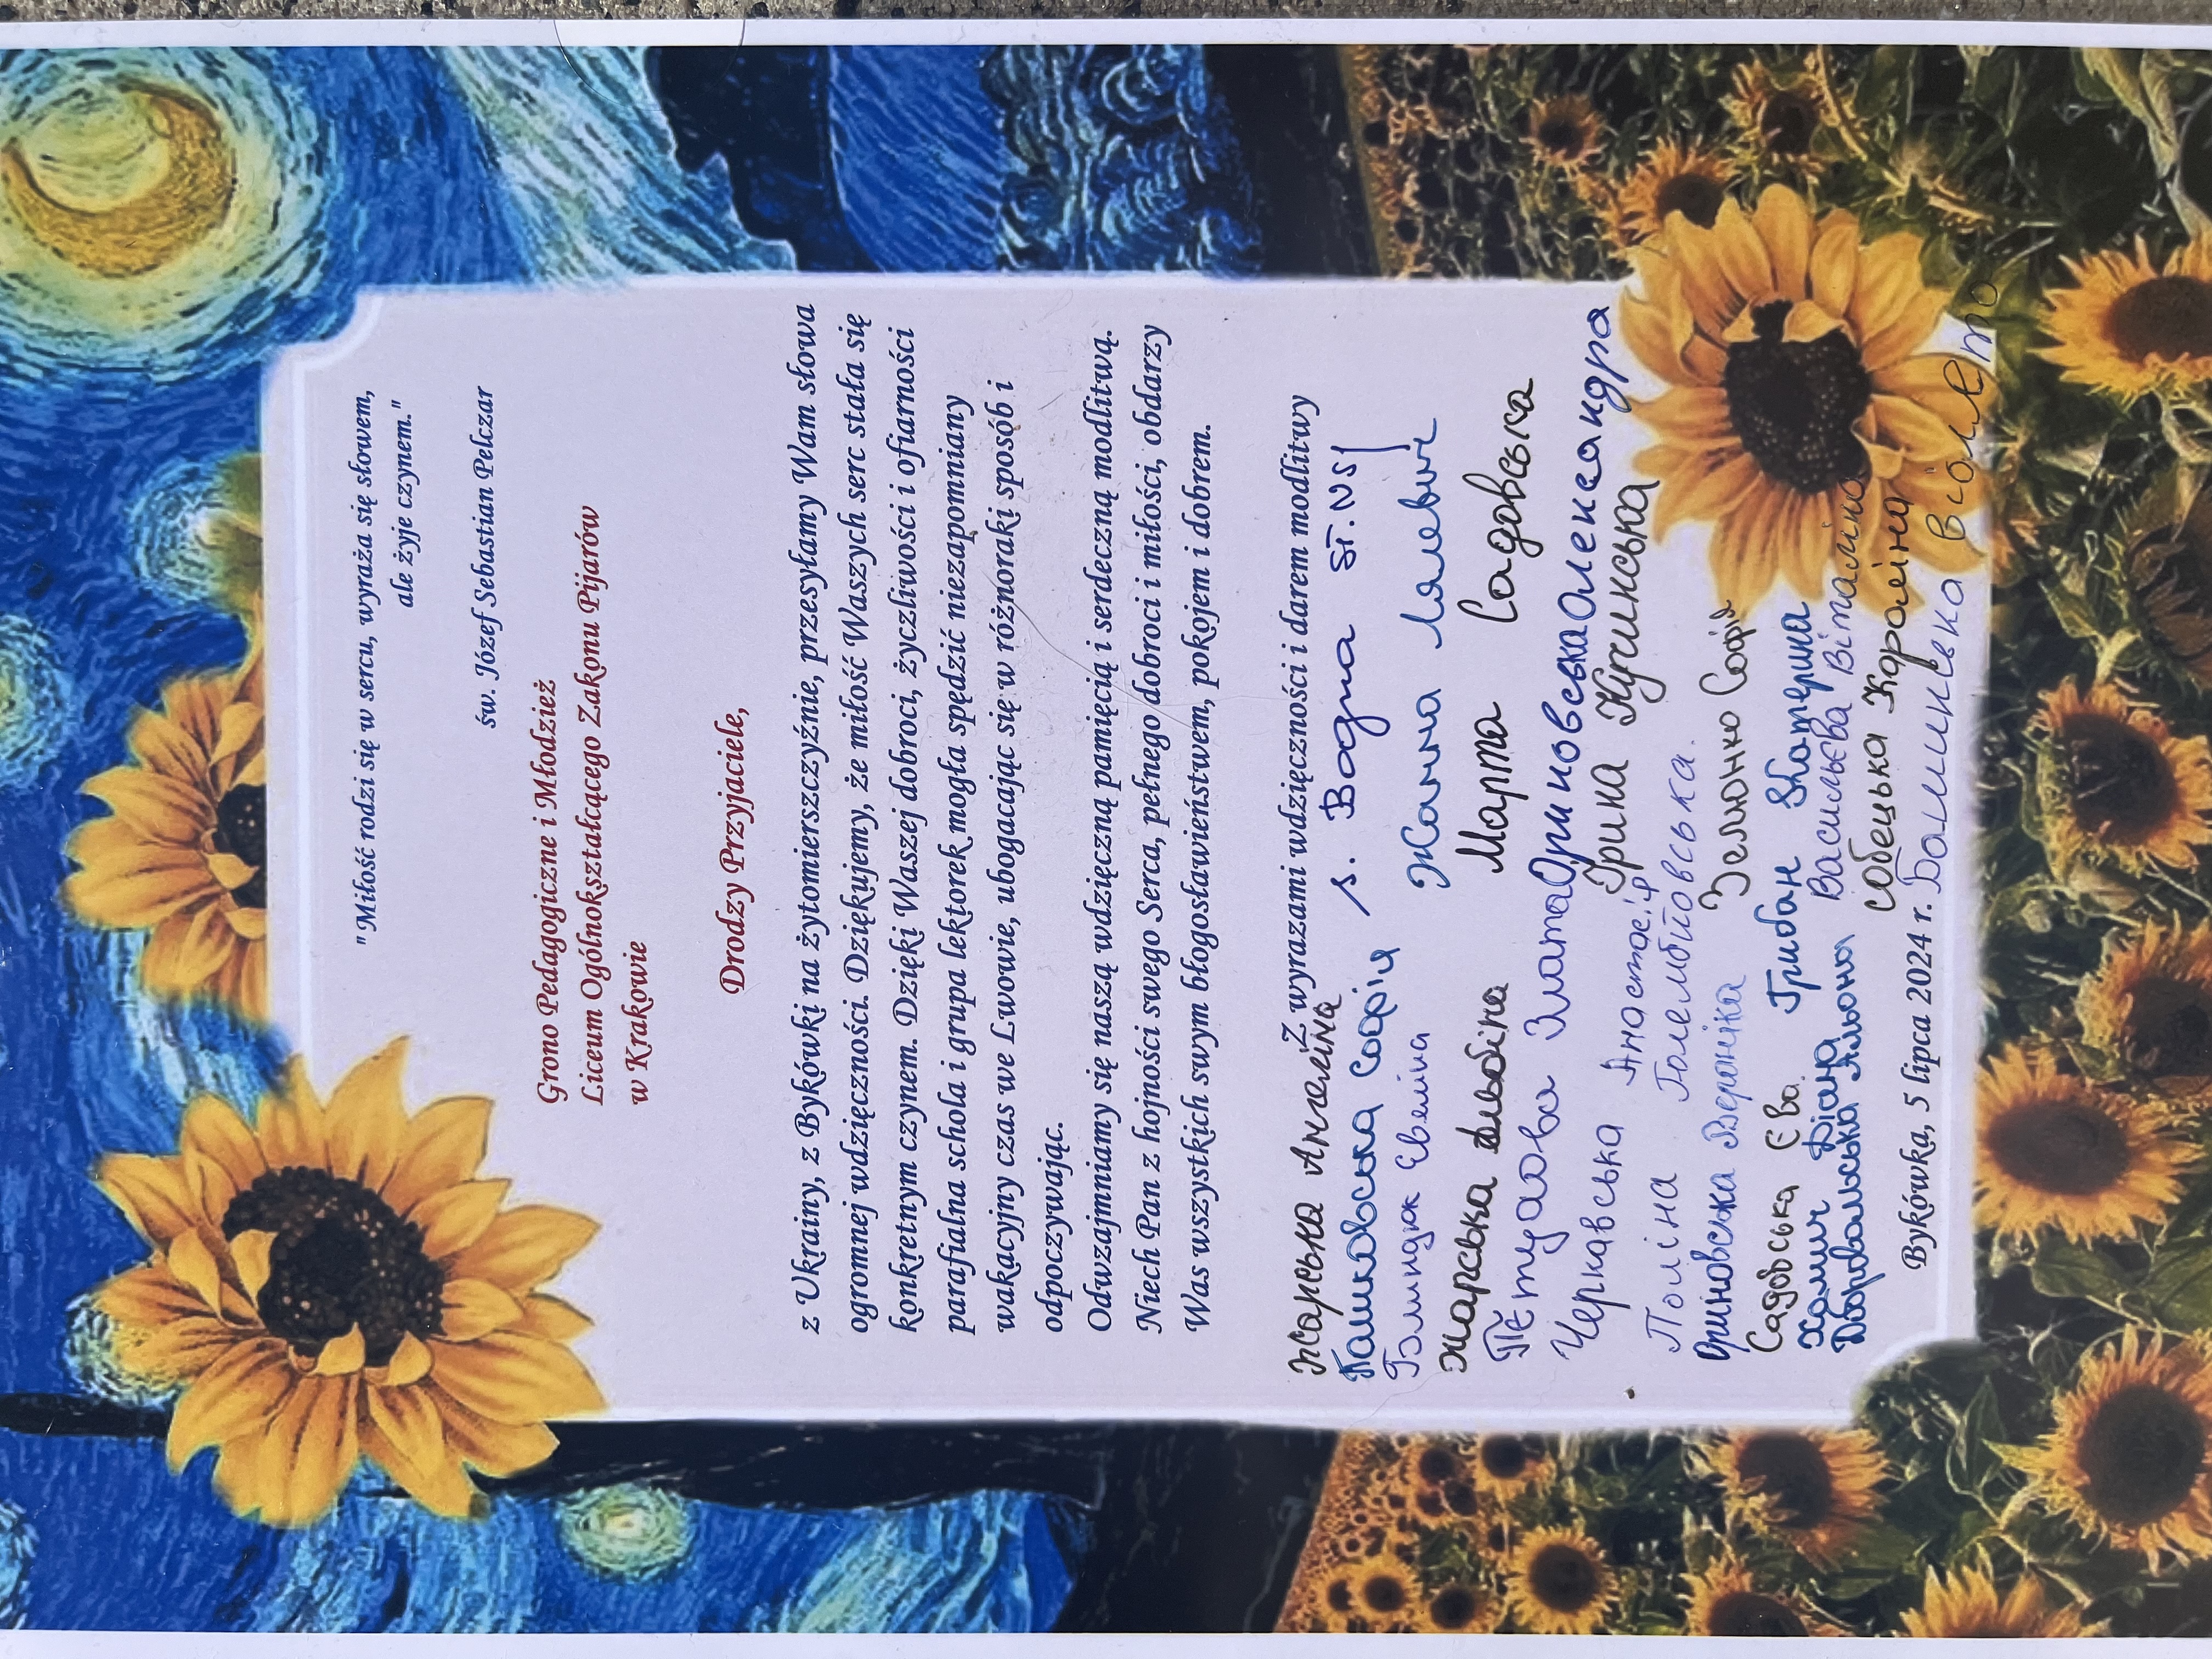 "Miłość rodzi się w sercu, wyraża się słowem,
ale żyje czynem."
św. Józef Sebastian Pelczar
Grono Pedagogiczne i Młodzież
Liceum Ogólnokształcącego Zakonu Pijarów
w Krakowie
Drodzy Przyjaciele,
z Ukrainy, z Bykówki na żytomierszczyźnie, przesyłamy Wam słowa
ogromnej wdzięczności. Dziękujemy, że miłość Waszych serc stała się
konkretnym czynem. Dzięki Waszej dobroci, życzliwości i ofiarności
parafialna schola i grupa lektorek mogła spędzić niezapomniany
wakacyjny czas we Lwowie, ubogacając się w różnoraki sposób i
odpoczywając.
Odwzajmniamy się naszą wdzięczną pamięcią i serdeczną modlitwą.
Niech Pan z hojności swego Serca, pełnego dobroci i miłości, obdarzy
Was wszystkich swym błogosławieństwem, pokojem i dobrem.
Z wyrazami wdzięczności i darem modlitwy
Жарська Ангеліна
s. Bogna
Пашковська Софія
Жанна
Евеліна
Марта Садовська
Жарська Альбіна
Петухова Злата
Ориновська Александра
Черкавська Анастасія
Ірина Кушнська
Поліна Голембйовська.
Ориновська Вероніка
Зелюнко Софія
Садовська Єва.
Грибан Катерина
Халич Діана
Васильєва Віталіна
Домбровольська Альона
Собецька Кароліна
Bykówka, 5 lipca 2024 r.
Віолета